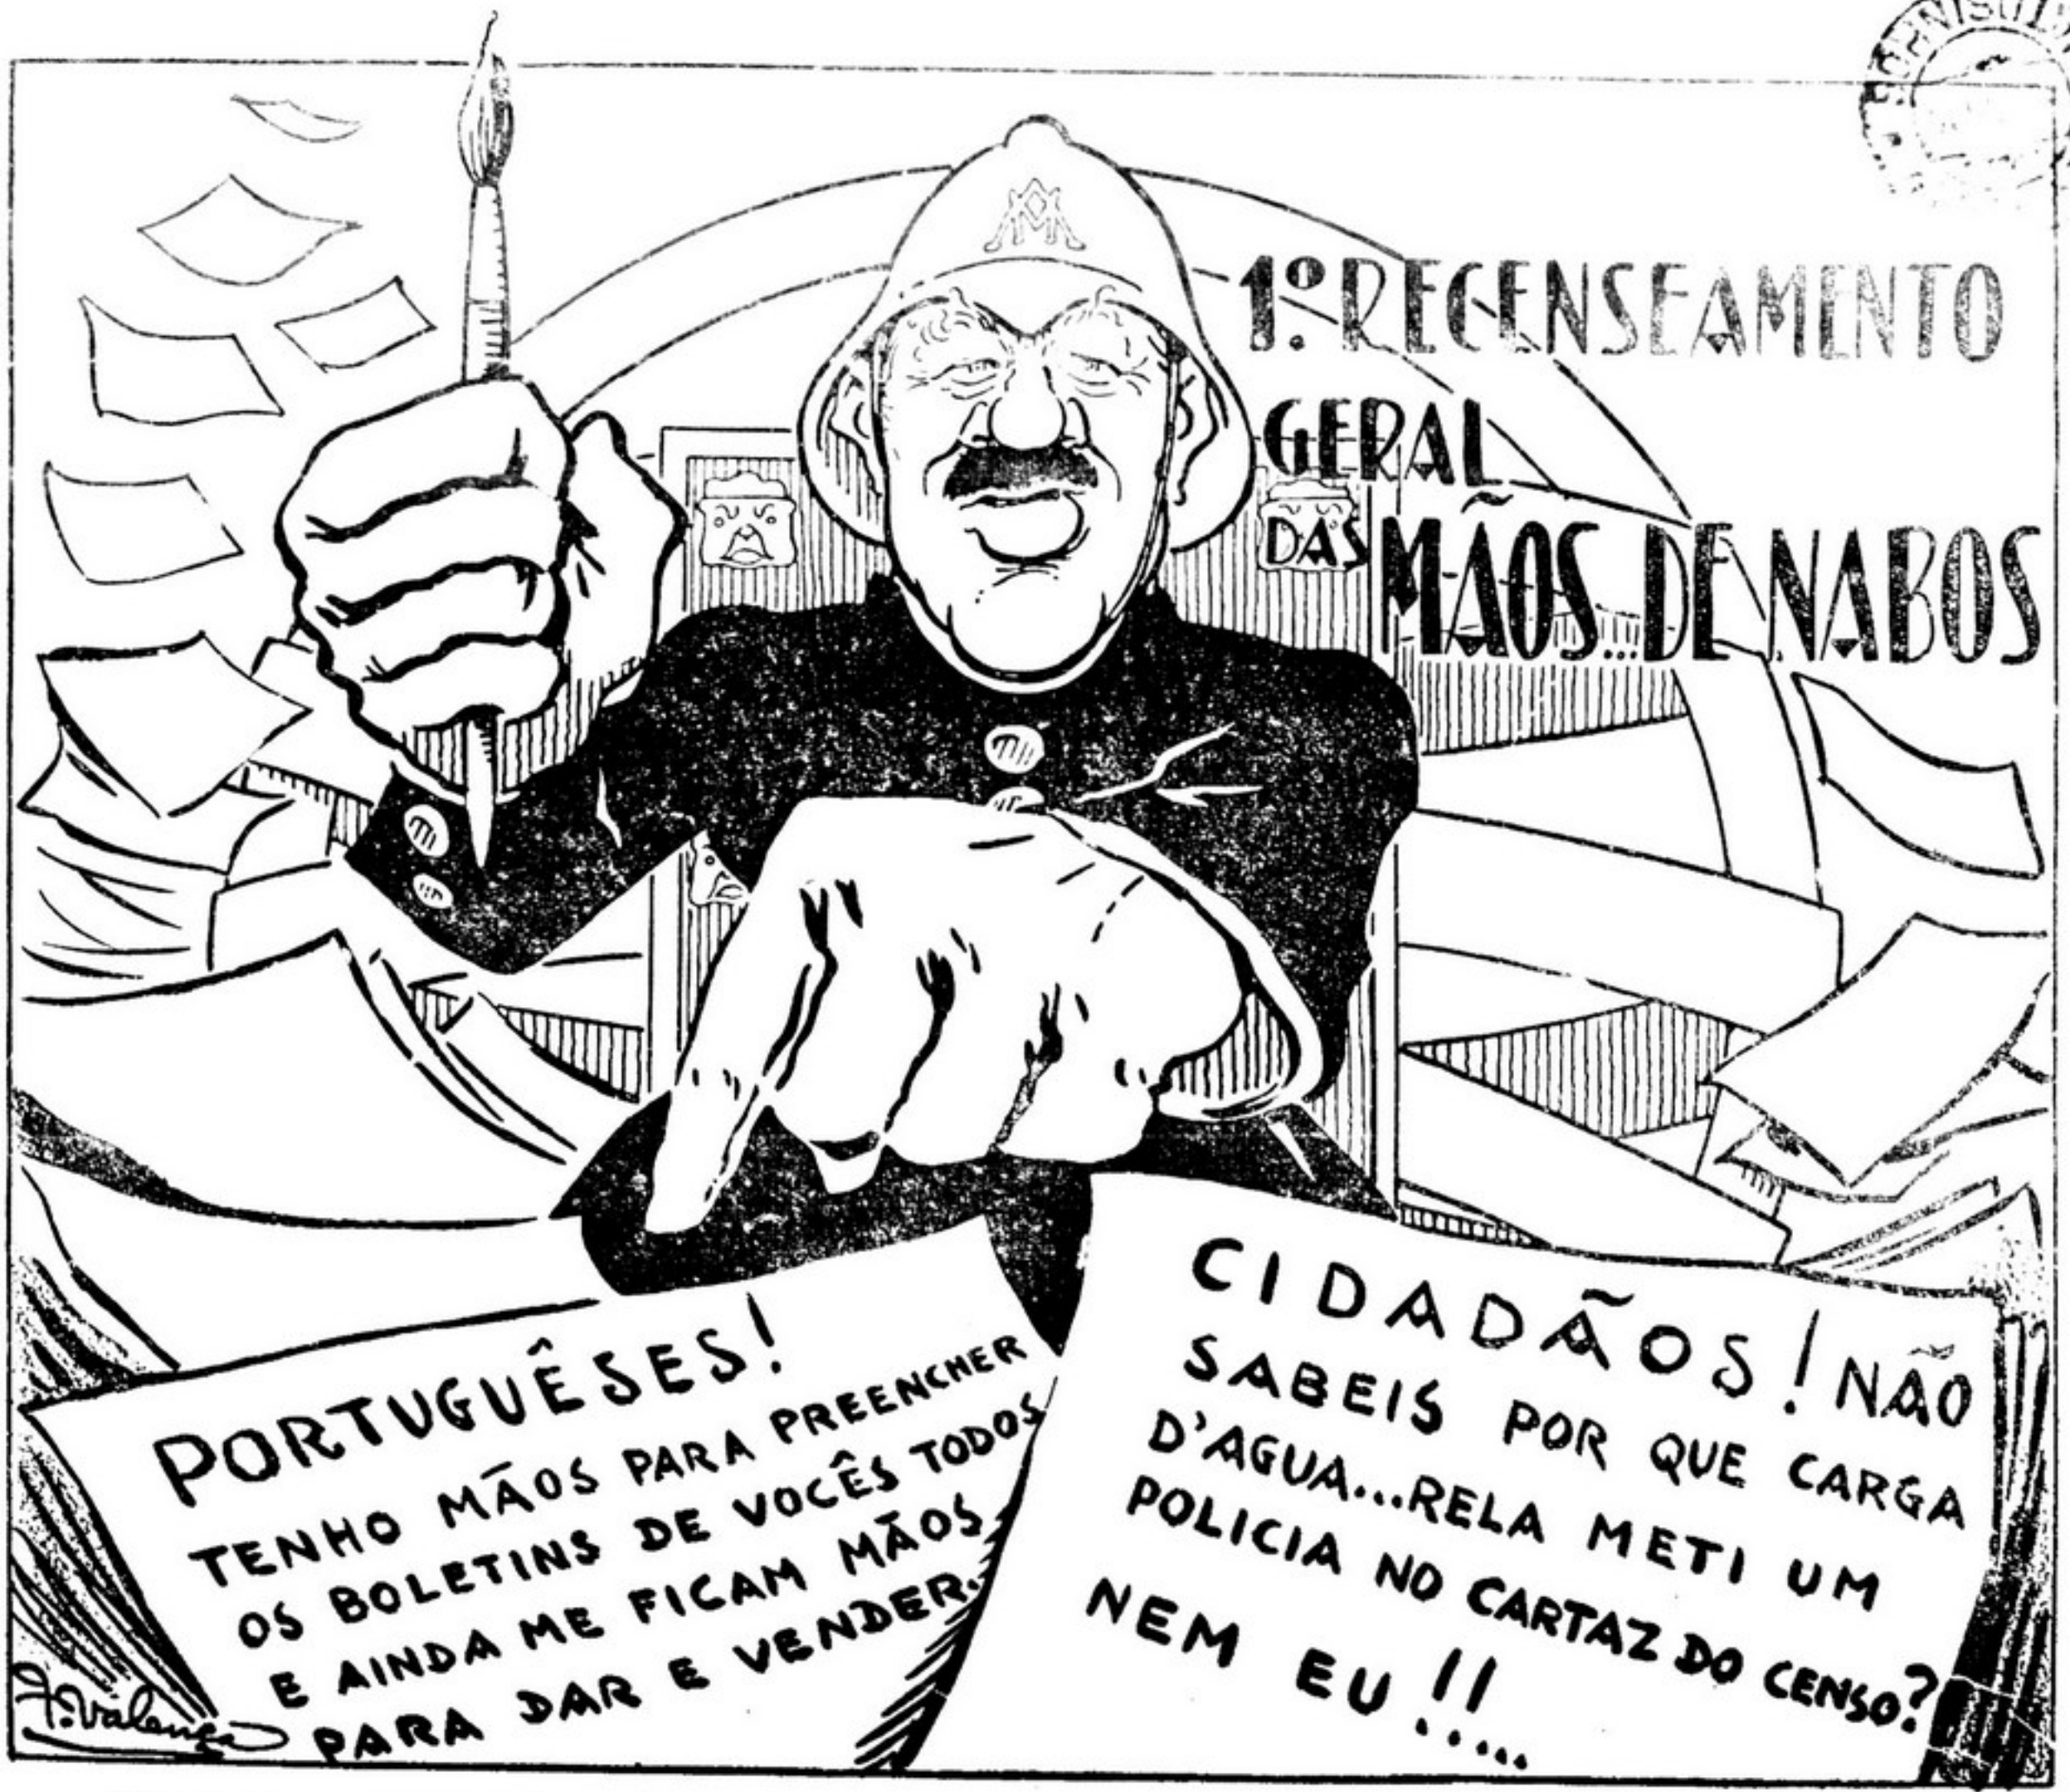 1º. RECENSEAMENTO
GERAL
DAS MÃOS...DE NABOS
PORTUGUÊSES!
TENHO MÃOS PARA PREENCHER
OS BOLETINS DE VOCÊS TODOS
E AINDA ME FICAM MÃOS
PARA DAR E VENDER.
CIDADÃOS! NÃO
SABEIS POR QUE CARGA
D'AGUA...RELA METI UM
POLICIA NO CARTAZ DO CENSO?
NEM EU!!....
F. Valença